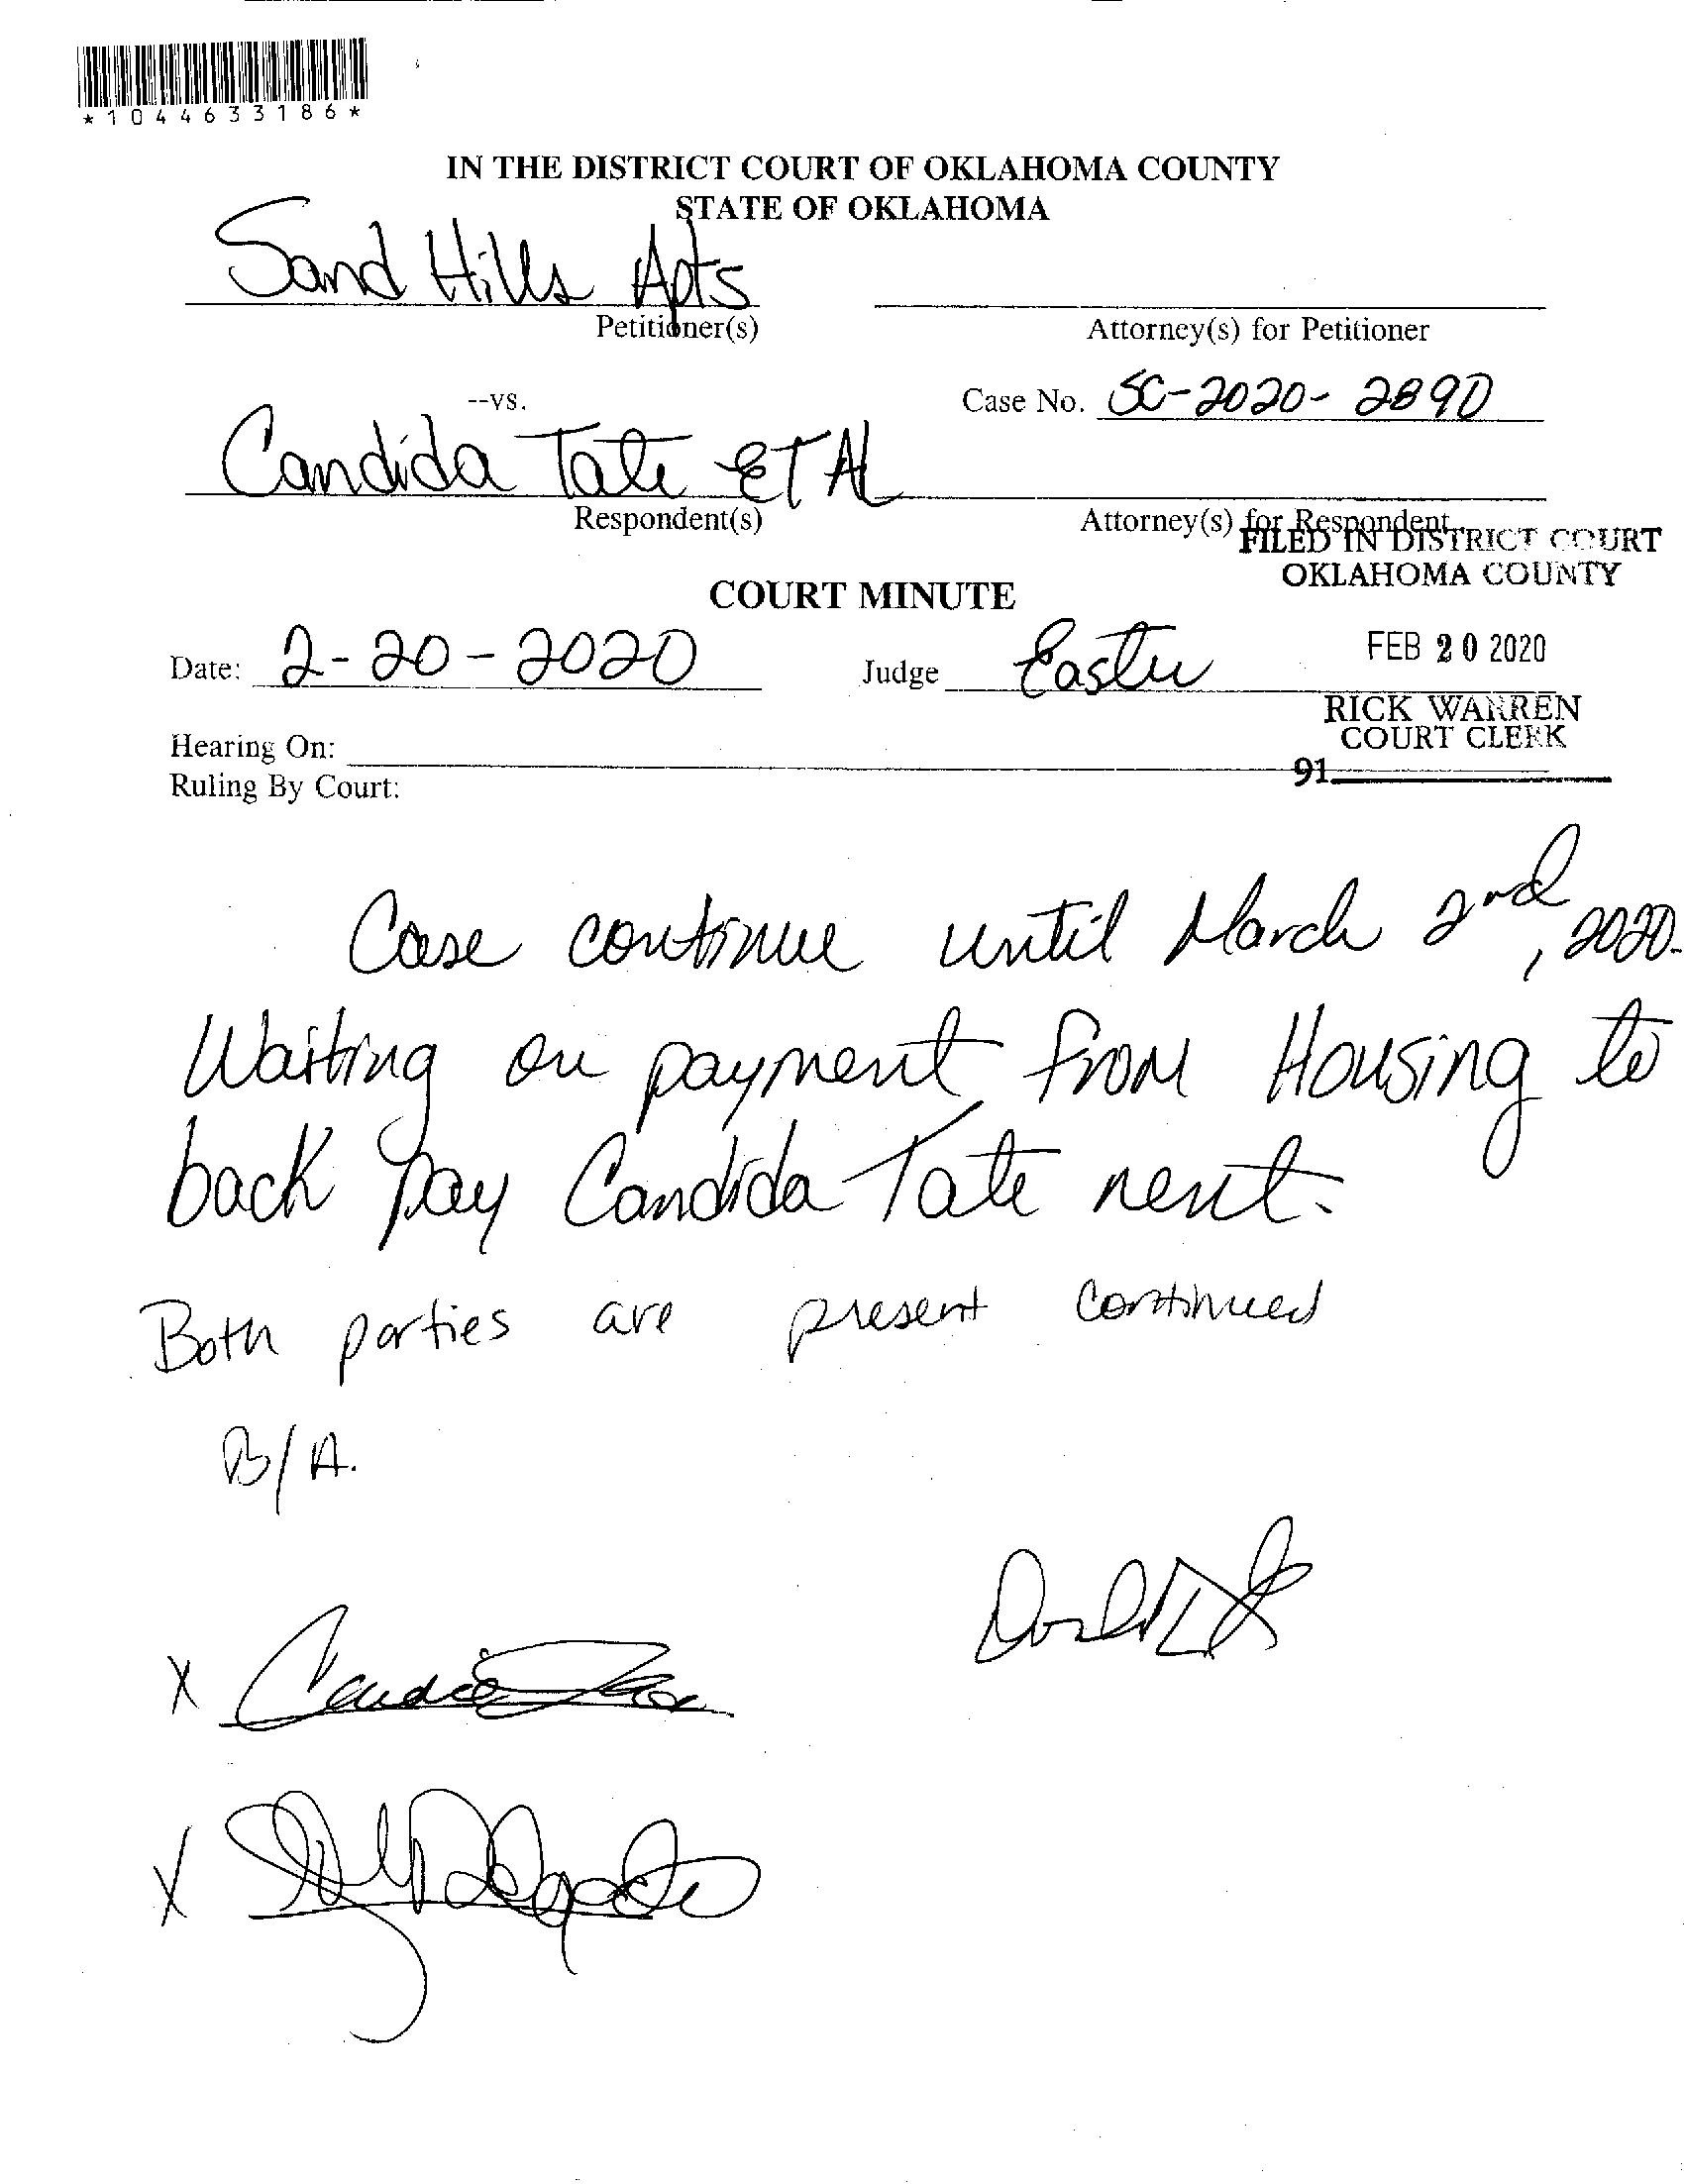 *1044633186*
IN THE DISTRICT COURT OF OKLAHOMA COUNTY
STATE OF OKLAHOMA
Sand Hills Apts
Petitioner(s)
Attorney(s) for Petitioner
--vs.
Case No. SC-2020-2890
Candida Tate ET AL
Respondent(s)
Attorney(s) for Respondent
FILED IN DISTRICT COURT
OKLAHOMA COUNTY
COURT MINUTE
FEB 20 2020
Date: 2-20-2020 Judge Easter
RICK WARREN
COURT CLERK
Hearing On:
91
Ruling By Court:
Case continue until March 2nd, 2020.
Waiting on payment from Housing to
back pay Candida Tate rent.
Both parties are present continued
B/A.
X
X